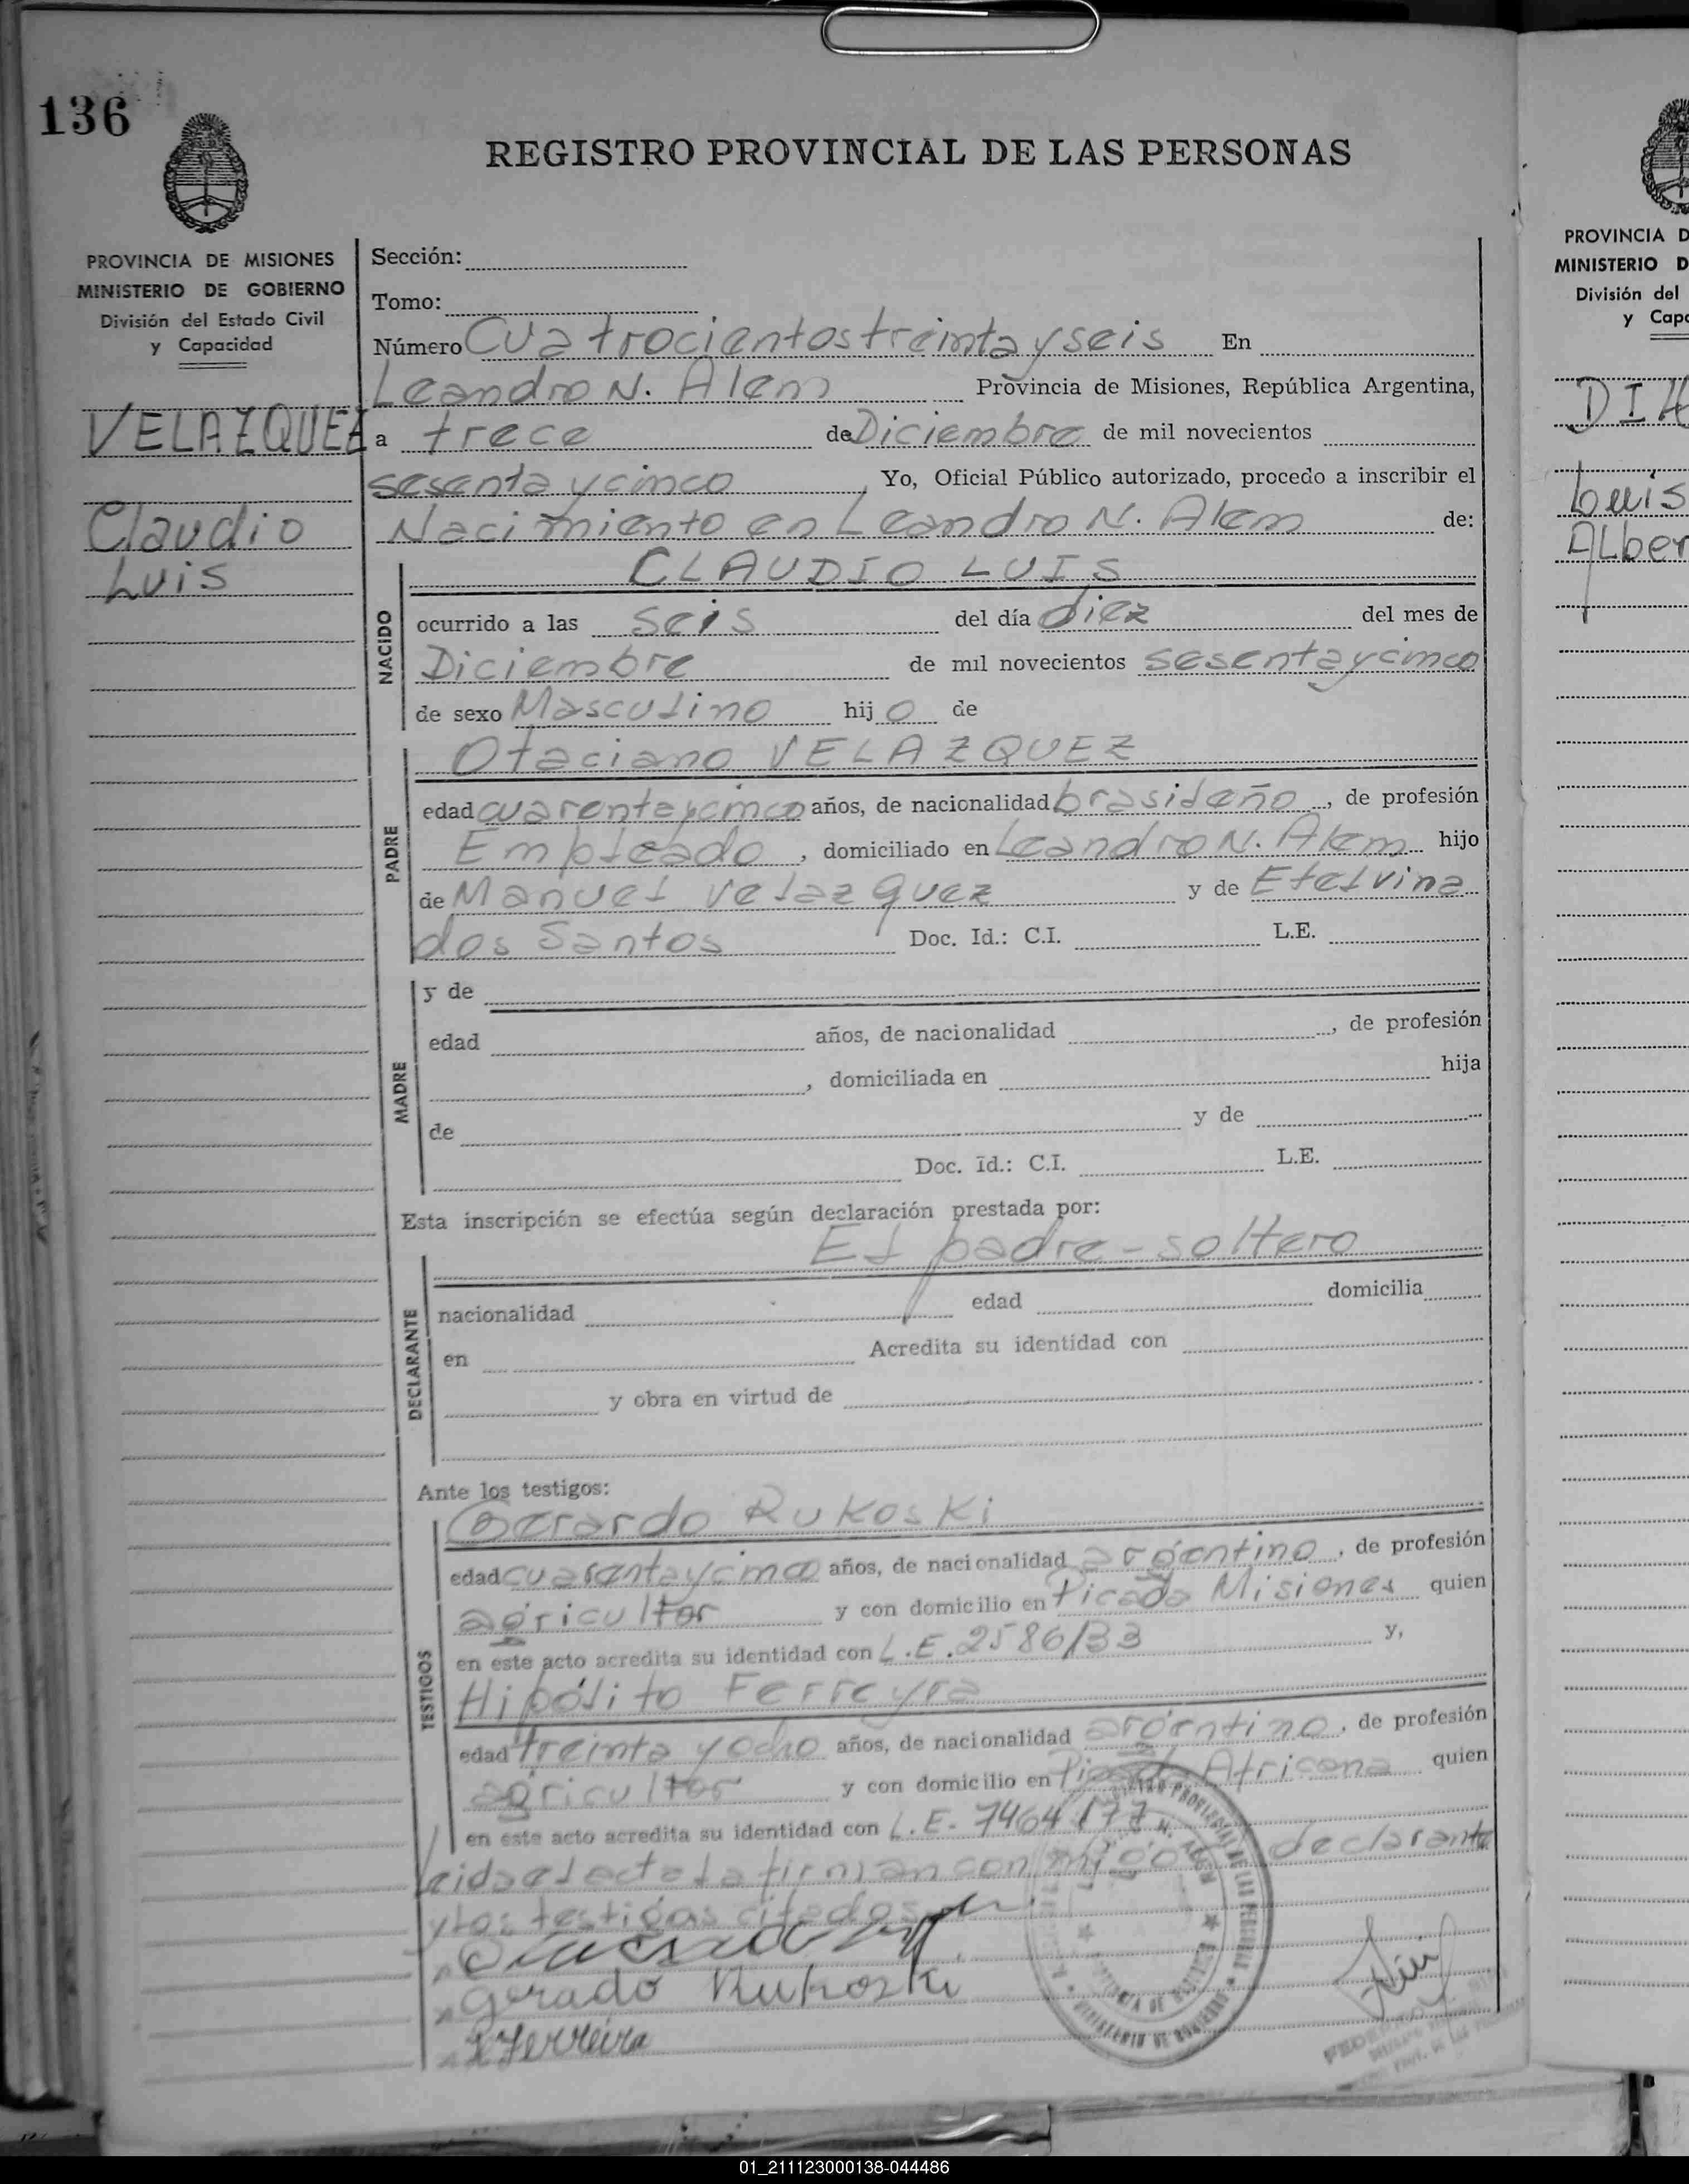 136
REGISTRO PROVINCIAL DE LAS PERSONAS
PROVINCIA DE MISIONES
MINISTERIO DE GOBIERNO
División del Estado Civil
y Capacidad
VELAZQUEZ
Claudio
Luis
Sección:
Tomo:
Número Cuatrocientos treinta y seis En
Leandro N. Alem Provincia de Misiones, República Argentina,
a trece de Diciembre de mil novecientos
sesenta y cinco Yo, Oficial Público autorizado, procedo a inscribir el
Nacimiento en Leandro N. Alem de:
CLAUDIO LUIS
NACIDO
ocurrido a las seis del día diez del mes de
Diciembre de mil novecientos sesenta y cinco
de sexo Masculino hijo de
Otaciano VELAZQUEZ
PADRE
edad cuarenta y cinco años, de nacionalidad brasileño, de profesión
Empleado, domiciliado en Leandro N. Alem hijo
de Manuel Velazquez y de Etelvina
dos Santos Doc. Id.: C.I. L.E.
MADRE
y de
edad años, de nacionalidad , de profesión
, domiciliada en hija
de y de
Doc. Id.: C.I. L.E.
Esta inscripción se efectúa según declaración prestada por:
El padre - soltero
DECLARANTE
nacionalidad edad domicilia
en Acredita su identidad con
y obra en virtud de
Ante los testigos:
Gerardo Rukoski
TESTIGOS
edad cuarenta y cinco años, de nacionalidad argentino, de profesión
agricultor y con domicilio en Picada Misiones quien
en este acto acredita su identidad con L.E. 2586/33 y,
Hipólito Ferreyra
edad treinta y ocho años, de nacionalidad argentino, de profesión
agricultor y con domicilio en Picada Africana quien
en este acto acredita su identidad con L.E. 7464177
leida el acta la firman conmigo declarante
y los testigos citados
Gerado Rukoski
Ferreira
PROVINCIA D
MINISTERIO D
División del
y Capa
Luis
Alber
01_211123000138-044486